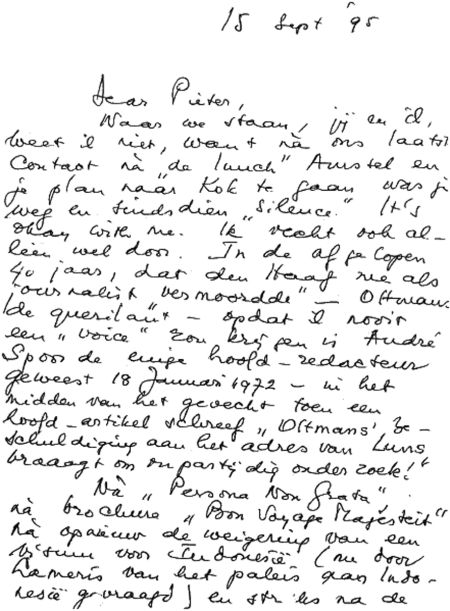 15 Sept '95
Dear Pieter,
Waar we staan, jij en ik,
weet ik niet, want nà ons laatst
Contact nà „de lunch" Amstel en
je plan naar Kok te gaan was je
weg en sindsdien „silence." It's
okay with me. Ik vecht ook al-
leen wel door. In de afgelopen
40 jaar, dat den Haag me als
journalist „vermoordde" — Oltmans
de querilant – opdat ik nooit
een „voice" zou krijgen is André
Spoor de enige hoofd-redacteur
geweest 18 Januari 1972 – in het
midden van het gevecht toen een
hoofd-artikel schreef „Oltmans' be-
schuldiging aan het adres van Luns
vraaagt om onpartijdig onderzoek!"
Nà „Persona Non Grata"
nà brochure „Boon Voyage Majesteit"
nà opnieuw de weigering van een
visum voor Indonesië (nu door
kameris van het paleis aan Indo-
nesië gevraagd) en na de